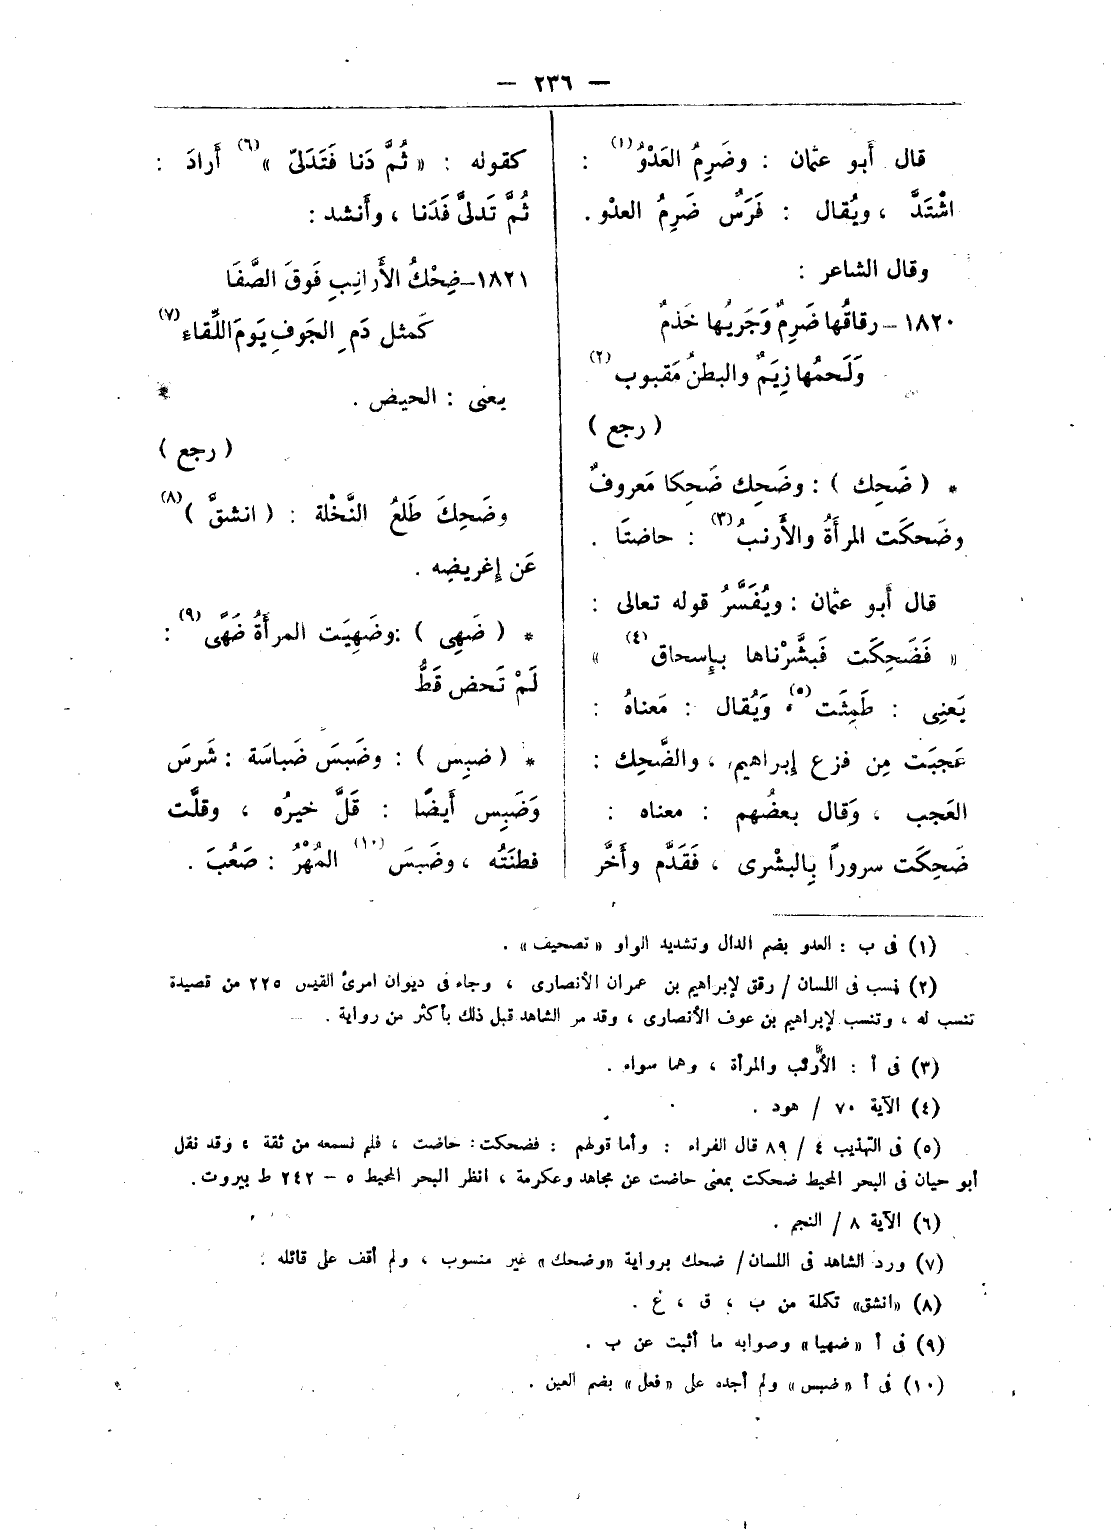 — ٢٣٦ —
قال أَبو عثمان : وضَرِمُ العَدْوُ(١) :
اشْتَدَّ ، ويُقال : فَرَسٌ ضَرِمُ العدْو .
وقال الشاعر :
١٨٢٠ – رقاقُها ضَرِمٌ وَجَريُها خَذمٌ
وَلَحمُها زِيَمٌ والبطنُ مَقبوب(٢)
( رجع )
* ( ضَحِك ) : وضَحِك ضَحِكا مَعروفٌ
وضَحكَت المرأَةُ والأَرنبُ(٣) : حاضتَا .
قال أَبو عثمان : ويُفَسَّرُ قوله تعالى :
« فَضَحِكَت فَبشَّرْناها بإِسحاق(٤) »
يَعنِى : طَمِثَت(٥) ، وَيُقال : مَعناهُ :
عَجبَت مِن فزع إِبراهيم ، والضَّحِك :
العَجب ، وَقال بعضُهم : معناه :
ضَحِكَت سروراً بِالبشْرى ، فَقَدَّم وأَخَّر
كقوله : « ثُمَّ دَنا فَتَدَلىّ »(٦) أَرادَ :
ثُمَّ تَدلىَّ فَدَنا ، وأَنشد :
١٨٢١–ضِحْكُ الأَرانِبِ فَوقَ الصَّفَا
كَمثل دَم ِ الجَوفِ يَومَ اللِّقاء(٧)
يعنى : الحيض .
( رجع )
وضَحِكَ طَلعُ النَّخْلة : ( انشقَّ )(٨)
عَن إِغريضِه .
* ( ضَهِى ) : وضَهِيَت المرأَةُ ضَهًى(٩) :
لَمْ تَحض قَطُّ
* ( ضبِس ) : وضَبسَ ضَباسَة : شَرسَ
وَضَبِس أَيضًا : قَلَّ خيرُه ، وقلَّت
فطنَتُه ، وضَبسَ(١٠) المُهْرُ : صَعُبَ .
(١) فى ب : العدو بضم الدال وتشديد الواو «تصحيف» .
(٢) نسب فى اللسان / رقق لإبراهيم بن عمران الأنصارى ، وجاء فى ديوان امرئ القيس ٢٢٥ من قصيدة
تنسب له ، وتنسب لإبراهيم بن عوف الأنصارى ، وقد مر الشاهد قبل ذلك بأكثر من رواية .
(٣) فى أ : الأرنب والمرأة ، وهما سواء .
(٤) الآية ٧٠ / هود .
(٥) فى التهذيب ٤ / ٨٩ قال الفراء : وأما قولهم : فضحكت : حاضت ، فلم نسمعه من ثقة ، وقد نقل
أبو حيان فى البحر المحيط ضحكت بمعنى حاضت عن مجاهد وعكرمة ، انظر البحر المحيط ٥ – ٢٤٢ ط بيروت .
(٦) الآية ٨ / النجم .
(٧) ورد الشاهد فى اللسان / ضحك برواية «وضحك» غير منسوب ، ولم أقف على قائله .
(٨) «انشق» تكملة من ب ، ق ، ع .
(٩) فى أ «ضهيا» وصوابه ما أثبت عن ب .
(١٠) فى أ «ضبس» ولم أجده على «فعل» بضم العين .